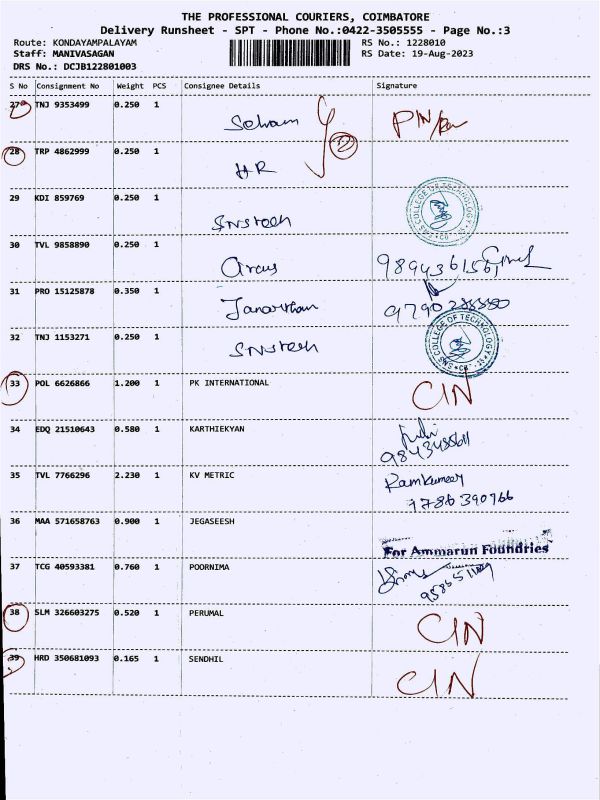 THE PROFESSIONAL COURIERS, COIMBATORE
Delivery Runsheet - SPT - Phone No.:0422-3505555 - Page No.:3
Route: KONDAYAMPALAYAM RS No.: 1228010
Staff: MANIVASAGAN RS Date: 19-Aug-2023
DRS No.: DCJB122801003
S No Consignment No Weight PCS Consignee Details Signature
27 TNJ 9353499 0.250 1
28 TRP 4862999 0.250 1 HR
12
29 KDI 859769 0.250 1 SNStech
SNS COLLEGE OF TECHNOLOGY
30 TVL 9858890 0.250 1
31 PRO 15125878 0.350 1 Janarthan
32 TNJ 1153271 0.250 1 SNStech
SNS COLLEGE OF TECHNOLOGY
33 POL 6626866 1.200 1 PK INTERNATIONAL CIN
34 EDQ 21510643 0.580 1 KARTHIEKYAN
35 TVL 7766296 2.230 1 KV METRIC Ramkumar
36 MAA 571658763 0.900 1 JEGASEESH
For Ammarun Foundries
37 TCG 40593381 0.760 1 POORNIMA
38 SLM 326603275 0.520 1 PERUMAL CIN
39 HRD 350681093 0.165 1 SENDHIL CIN